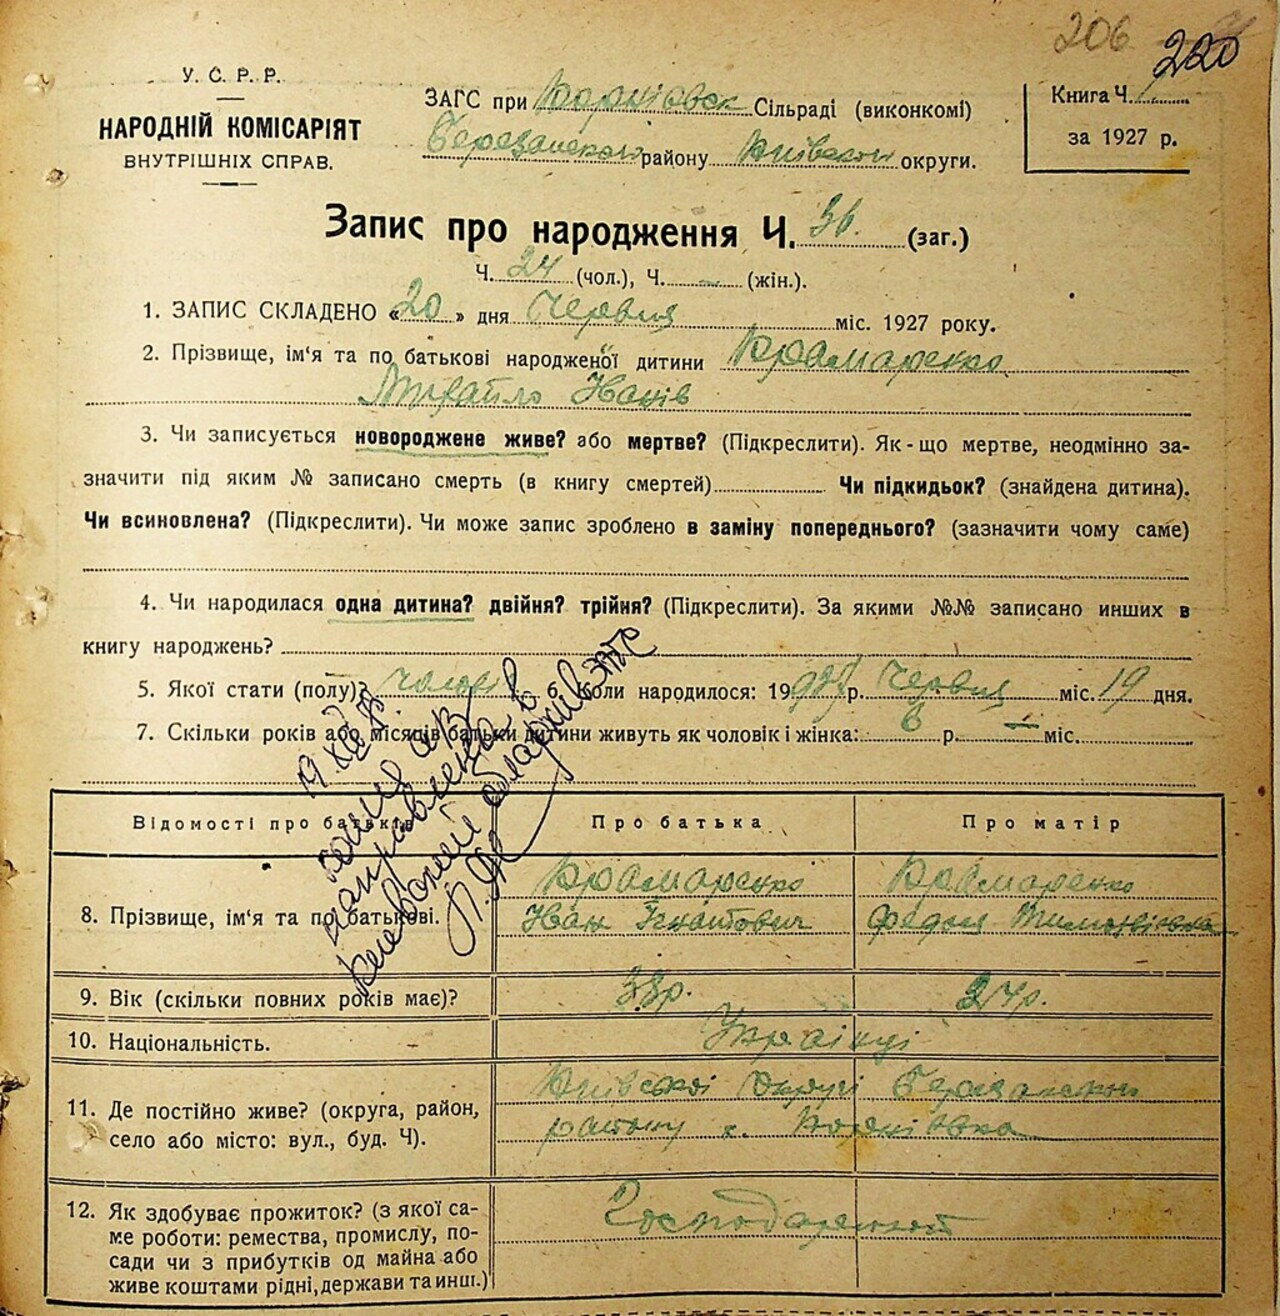 206
220
У. С. Р. Р.
НАРОДНІЙ КОМІСАРІЯТ
ВНУТРІШНІХ СПРАВ.
ЗАГС при Корніівськ Сільраді (виконкомі)
Березанського району Київської округи.
Книга Ч.
за 1927 р.
Запис про народження Ч. 36. (заг.)
Ч. 24 (чол.), Ч. — (жін.).
1. ЗАПИС СКЛАДЕНО «20» дня Червня міс. 1927 року.
2. Прізвище, ім'я та по батькові народженої дитини Крамаренко
Михайло Іванів
3. Чи записується новороджене живе? або мертве? (Підкреслити). Як-що мертве, неодмінно за-
значити під яким № записано смерть (в книгу смертей) Чи підкидьок? (знайдена дитина).
Чи всиновлена? (Підкреслити). Чи може запис зроблено в заміну попереднього? (зазначити чому саме)
4. Чи народилася одна дитина? двійня? трійня? (Підкреслити). За якими №№ записано инших в
книгу народжень?
5. Якої стати (полу)? 6. Коли народилося: 1927 р. Червня міс. 19 дня.
7. Скільки років або місяців батьки дитини живуть як чоловік і жінка: 6 р. — міс.
копия а/з
направлена в
Киевский облархив ЗАГС
Відомості про батьків Про батька Про матір
8. Прізвище, ім'я та по батькові.
Крамаренко Крамаренко
Іван Ігнатович Федося Тимофіївна
9. Вік (скільки повних років має)? 33р. 27р.
10. Національність. Українці
11. Де постійно живе? (округа, район,
село або місто: вул., буд. Ч).
Київської округи Березанської
району с. Корніївка
12. Як здобуває прожиток? (з якої са-
ме роботи: ремества, промислу, по-
сади чи з прибутків од майна або
живе коштами рідні, держави та инш.)